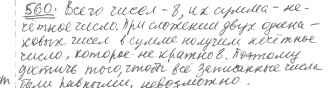 560. Всего чисел - 8, их сумма - не-
четное число. При сложении двух одина-
ковых чисел в сумме получим нечётное
число, которое не кратно 8. Поэтому
достичь того, чтобы все записанные числа
т. были равными, невозможно.